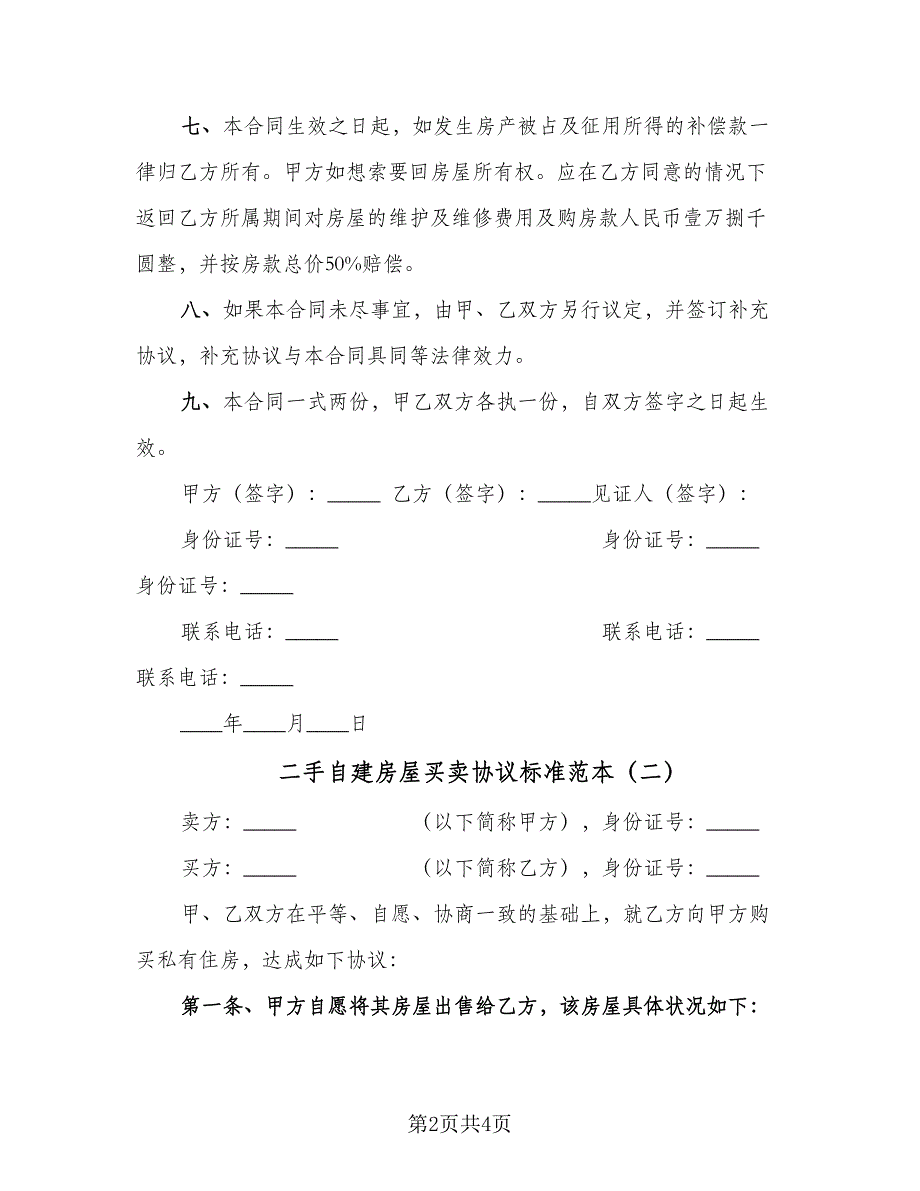 七、本合同生效之日起，如发生房产被占及征用所得的补偿款一
律归乙方所有。甲方如想索要回房屋所有权。应在乙方同意的情况下
返回乙方所属期间对房屋的维护及维修费用及购房款人民币壹万捌千
圆整，并按房款总价50%赔偿。
八、如果本合同未尽事宜，由甲、乙双方另行议定，并签订补充
协议，补充协议与本合同具同等法律效力。
九、本合同一式两份，甲乙双方各执一份，自双方签字之日起生
效。
甲方（签字）：_____ 乙方（签字）：_____见证人（签字）：
身份证号：_____ 身份证号：_____
身份证号：_____
联系电话：_____ 联系电话：_____
联系电话：_____
____年____月____日
二手自建房屋买卖协议标准范本（二）
卖方：_____ （以下简称甲方），身份证号：_____
买方：_____ （以下简称乙方），身份证号：_____
甲、乙双方在平等、自愿、协商一致的基础上，就乙方向甲方购
买私有住房，达成如下协议：
第一条、甲方自愿将其房屋出售给乙方，该房屋具体状况如下：
第2页共4页